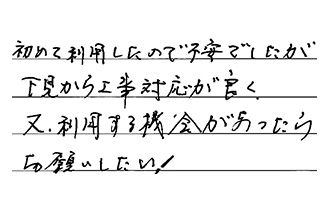 初めて利用したので不安でしたが
下見から工事対応が良く、
又、利用する機会があったら
お願いしたい！